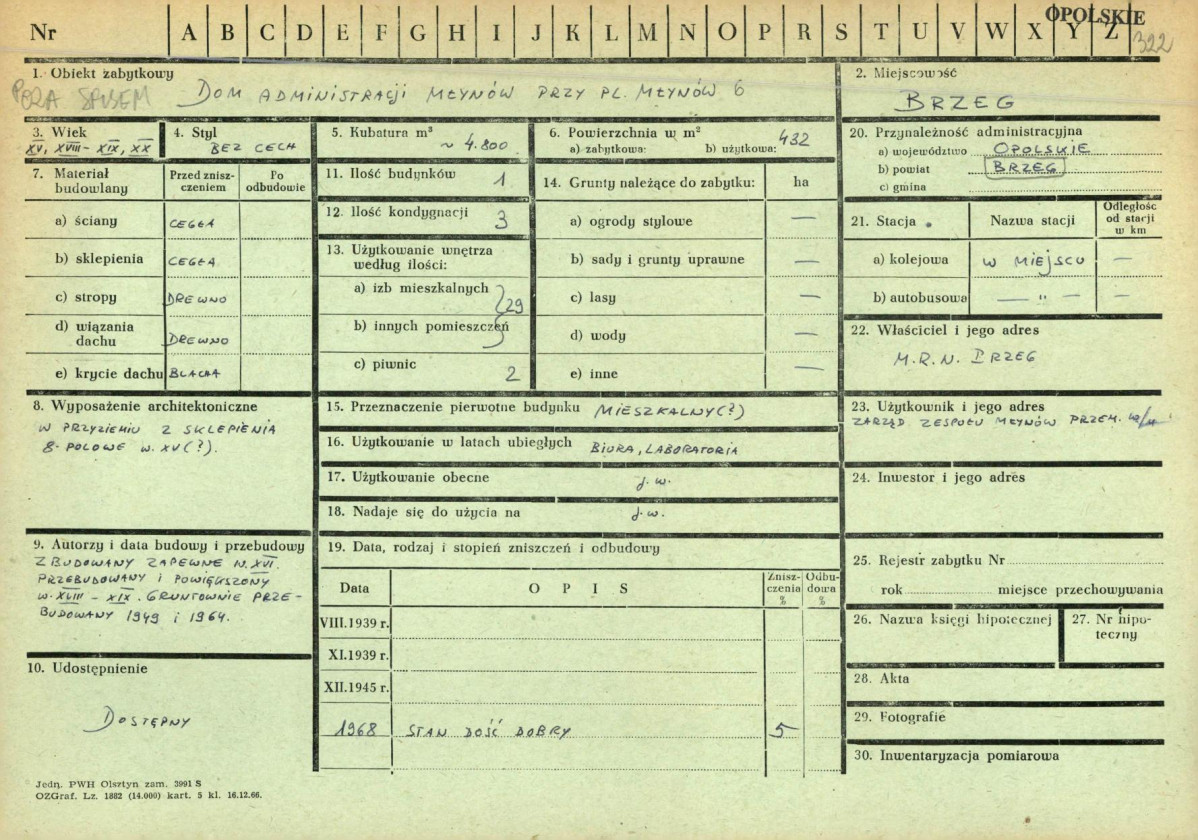 Nr A B C D E F G H I J K L M N O P R S T U V W X Y Z
OPOLSKIE
322
1. Obiekt zabytkowy
POZA SPISEM
DOM ADMINISTRACJI MŁYNÓW PRZY PL. MŁYNÓW 6
2. Miejscowość
BRZEG
3. Wiek
XV, XVIII - XIX, XX
4. Styl
BEZ CECH
5. Kubatura m³
~ 4.800
6. Powierzchnia w m²
a) zabytkowa: b) użytkowa: 432
20. Przynależność administracyjna
a) województwo OPOLSKIE
b) powiat BRZEG
c) gmina
7. Materiał budowlany
Przed zniszczeniem
Po odbudowie
a) ściany CEGŁA
b) sklepienia CEGŁA
c) stropy DREWNO
d) wiązania dachu DREWNO
e) krycie dachu BLACHA
11. Ilość budynków 1
12. Ilość kondygnacji 3
13. Użytkowanie wnętrza
według ilości:
a) izb mieszkalnych
29
b) innych pomieszczeń
c) piwnic 2
14. Grunty należące do zabytku: ha
a) ogrody stylowe —
b) sady i grunty uprawne —
c) lasy —
d) wody —
e) inne —
21. Stacja
Nazwa stacji
Odległość
od stacji
w km
a) kolejowa W MIEJSCU —
b) autobusowa — " — —
22. Właściciel i jego adres
M.R.N. BRZEG
8. Wyposażenie architektoniczne
W PRZYZIEMIU 2 SKLEPIENIA
8-POLOWE W. XV (?).
15. Przeznaczenie pierwotne budynku MIESZKALNY (?)
16. Użytkowanie w latach ubiegłych BIURA, LABORATORIA
17. Użytkowanie obecne j. w.
18. Nadaje się do użycia na j. w.
23. Użytkownik i jego adres
ZARZĄD ZESPOŁU MŁYNÓW PRZEM.
24. Inwestor i jego adres
9. Autorzy i data budowy i przebudowy
ZBUDOWANY ZAPEWNE W. XVI.
PRZEBUDOWANY I POWIĘKSZONY
W. XVIII - XIX. GRUNTOWNIE PRZE-
BUDOWANY 1949 i 1964.
19. Data, rodzaj i stopień zniszczeń i odbudowy
Data
O P I S
Zniszczenia %
Odbudowa %
VIII.1939 r.
XI.1939 r.
XII.1945 r.
1968 STAN DOŚĆ DOBRY 5
25. Rejestr zabytku Nr
rok miejsce przechowywania
26. Nazwa księgi hipotecznej
27. Nr hipoteczny
28. Akta
29. Fotografie
30. Inwentaryzacja pomiarowa
10. Udostępnienie
DOSTĘPNY
Jedn. PWH Olsztyn zam. 3991 S
OZGraf. Lz. 1882 (14.000) kart. 5 kl. 16.12.66.